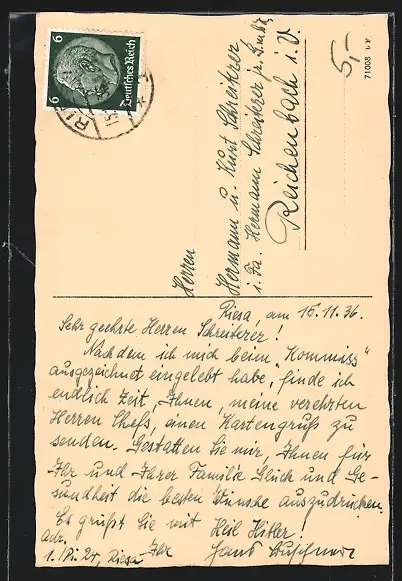 6 6
Deutsches Reich
5,-
71008
Herren
Hermann u. Kurt Schreiterer
i. Fa. Hermann Schreiterer jr. G.m.b.H.
Reichenbach i. V.
Riesa, am 15.11.36.
Sehr geehrte Herren Schreiterer!
Nachdem ich mich beim „Kommiss"
ausgezeichnet eingelebt habe, finde ich
endlich Zeit, Ihnen, meine verehrten
Herren Chefs, einen Kartengruß zu
senden. Gestatten Sie mir, Ihnen für
Ihr und Ihrer Familie Glück und Ge-
sundheit die besten Wünsche auszudrücken.
Es grüßt Sie mit Heil Hitler!
Adr.
1./Pi. 24, Riesa Ihr Hans